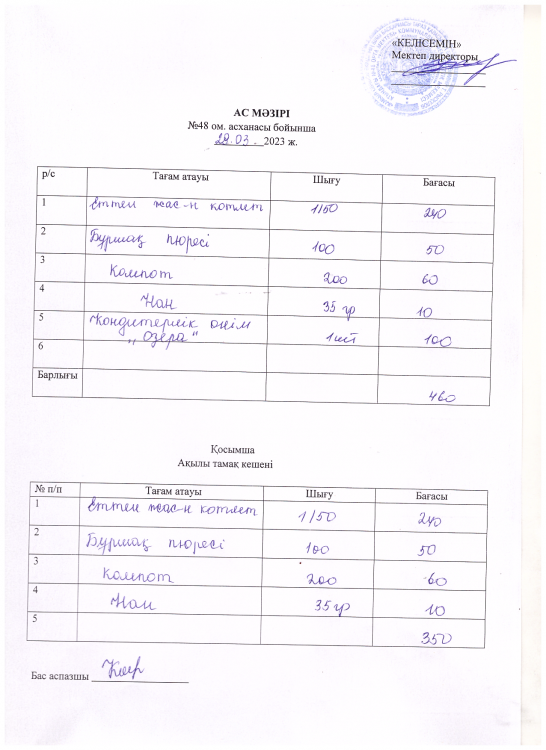 «КЕЛІСЕМІН»
Мектеп директоры
АС МӘЗІРІ
№48 ом. асханасы бойынша
28.03. 2023 ж.
р/с Тағам атауы Шығу Бағасы
1 Еттен жас-н котлет 1/50 240
2 Бұршақ пюресі 100 50
3 Компот 200 60
4 Нан 35 гр 10
5 Кондитерлік өнім 1шт 100
„Озера“
6
Барлығы 460
Қосымша
Ақылы тамақ кешені
№ п/п Тағам атауы Шығу Бағасы
1 Еттен жас-н котлет 1/50 240
2 Бұршақ пюресі 100 50
3 Компот 200 60
4 Нан 35гр 10
5 350
Бас аспазшы